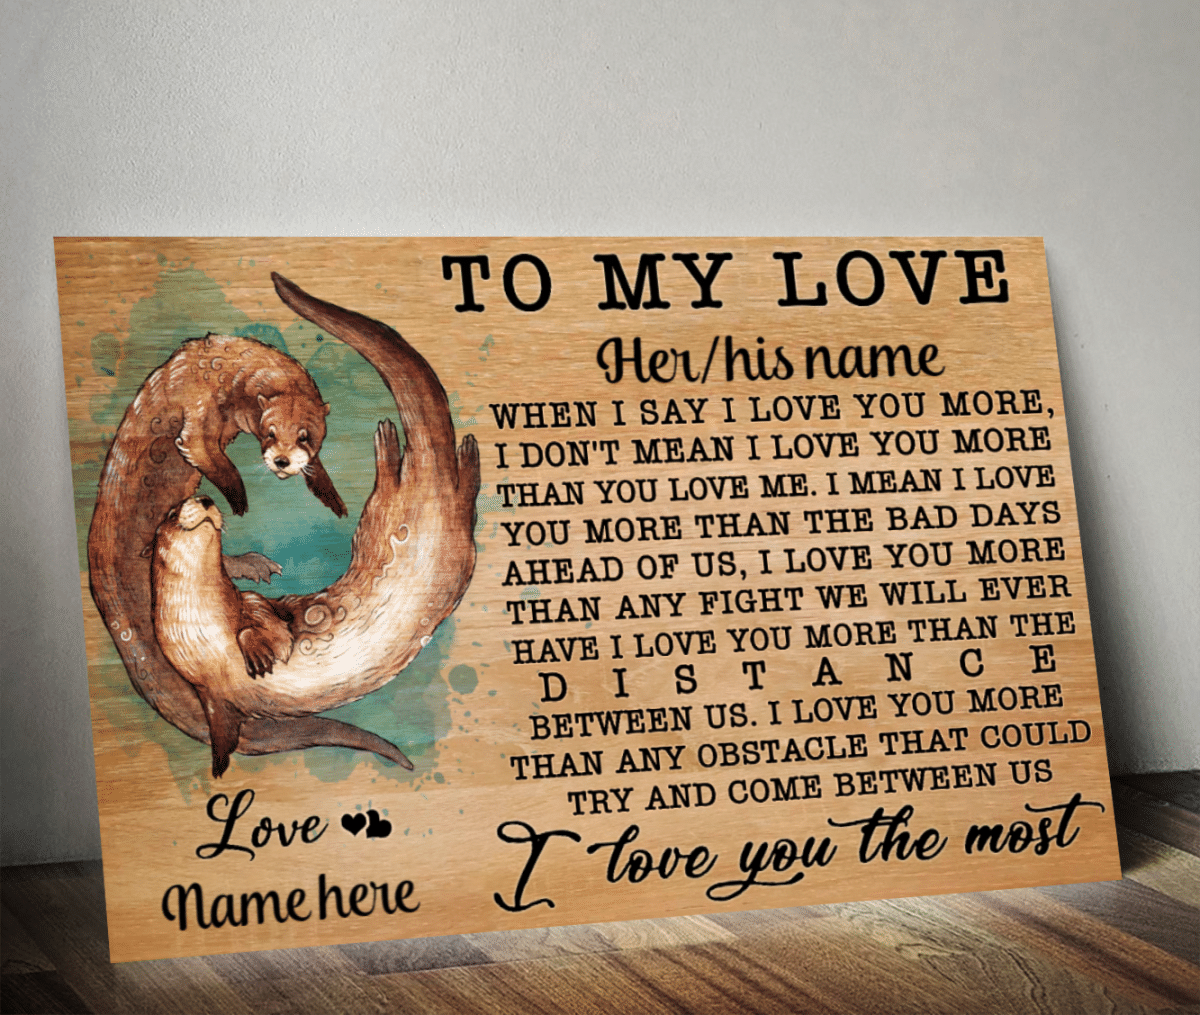 TO MY LOVE
Her/his name
WHEN I SAY I LOVE YOU MORE,
I DON'T MEAN I LOVE YOU MORE
THAN YOU LOVE ME. I MEAN I LOVE
YOU MORE THAN THE BAD DAYS
AHEAD OF US, I LOVE YOU MORE
THAN ANY FIGHT WE WILL EVER
HAVE I LOVE YOU MORE THAN THE
D I S T A N C E
BETWEEN US. I LOVE YOU MORE
THAN ANY OBSTACLE THAT COULD
TRY AND COME BETWEEN US
I love you the most
Love
Name here